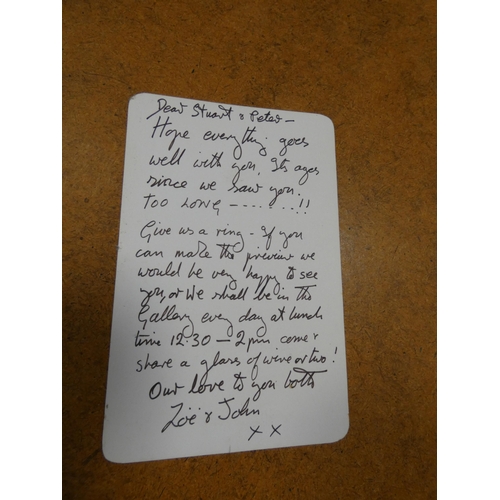 Dear Stuart & Peter —
Hope everything goes
well with you. Its ages
since we saw you.
TOO LONG - - - - . . . !!
Give us a ring - If you
can make the preview we
would be very happy to see
you, or We shall be in the
Gallery every day at lunch
time 12.30 — 2pm come &
share a glass of wine or two!
Our love to you both
Zoë & John
x x